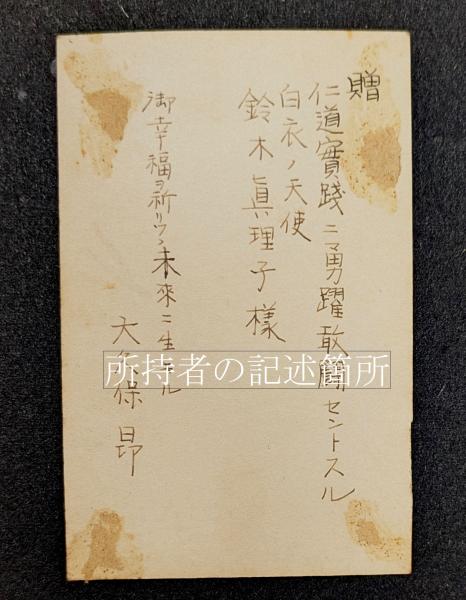 贈
仁道實踐ニ勇躍敢鬪セントスル
白衣ノ天使
鈴木眞理子様
御幸福ヲ祈リツヽ未來ニ生キル
大久保昂
所持者の記述箇所